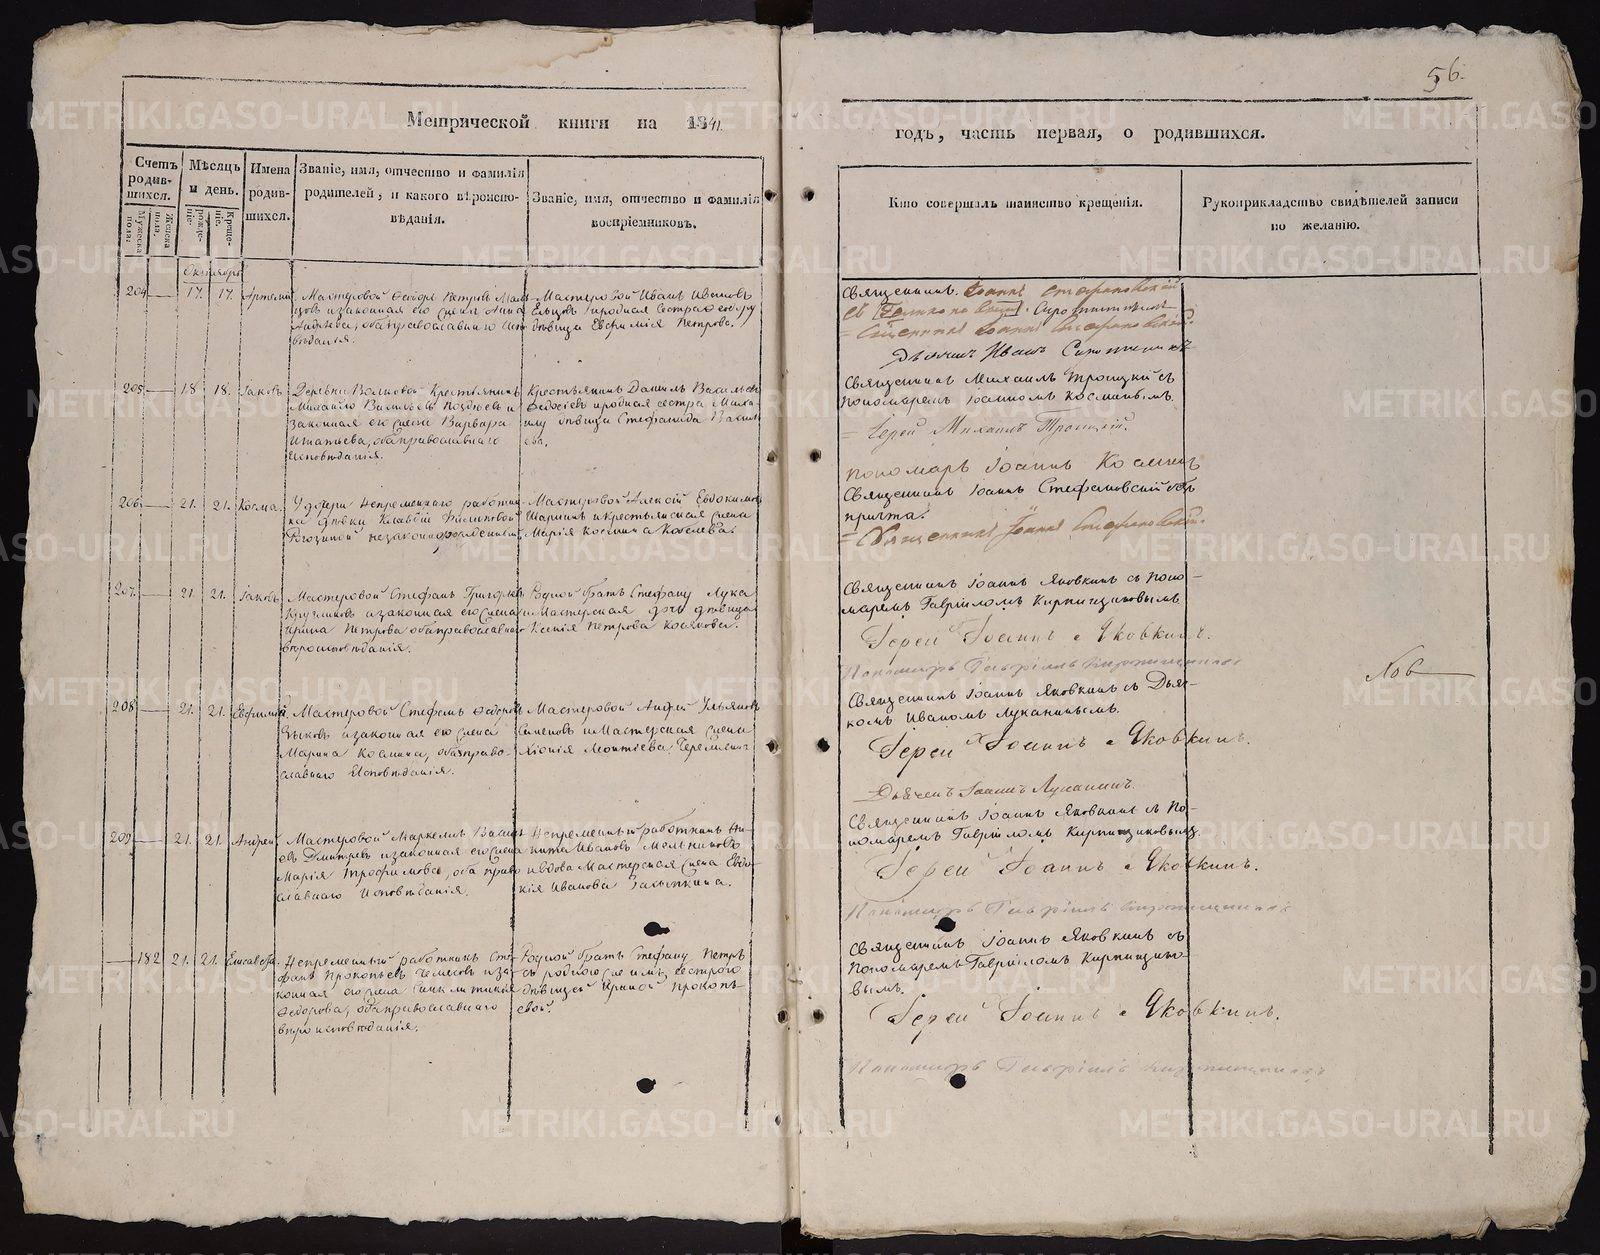 56.
Метрической книги на 1841.
годъ, часть первая, о родившихся.
Счетъ родив-шихся.
Мужеска пола.
Женска пола.
Мѣсяцъ и день.
рожде-ніе.
Креще-ніе.
Имена родив-шихся.
Званіе, имя, отчество и фамилія
родителей, и какого вѣроиспо-
вѣданія.
Званіе, имя, отчество и фамилія
воспріемниковъ.
Кто совершалъ таинство крещенія.
Рукоприкладство свидѣтелей записи
по желанію.
Октябрь
204 17. 17. Артемій
Мастеровой Ѳеодоръ Петровъ
законная его жена Анна
оба православнаго
вѣданія.
Мастеровой Иванъ Ивановъ
родная сестра
дѣвица Евфимія Петрова.
Священникъ Іоаннъ Стефановскій
Священникъ Іоаннъ Стефановскій.
Дьячекъ Иванъ
205 18 18. Іаковъ
Деревни Волковой Крестьянинъ
Михайло Васильевъ и
законная его жена Варвара
Игнатьева, оба православнаго
исповѣданія.
Крестьянинъ Даніилъ Васильевъ
Ѳедосѣевъ и родная сестра Миха-
илу дѣвица Стефанида Василь-
ева.
Священникъ Михаилъ Троицкій съ
Пономаремъ Іоанномъ Косминымъ.
Іерей Михаилъ Троицкій.
Пономарь Іоаннъ Косминъ
206 21. 21. Косма.
У дщери Непремѣннаго работни-
ка дѣвки
незаконнорожденный
Мастеровой Алексій Евдокимовъ
и крестьянская жена
Марія Космина Кобелева.
Священникъ Іоаннъ Стефановскій безъ
причта.
Священникъ Іоаннъ Стефановскій.
207. 21. 21. Іаковъ
Мастеровой Стефанъ Григорьевъ
и законная его жена
Ирина Петрова оба православнаго
вѣроисповѣданія.
Родной братъ Стефану Лука
и Мастерская дочь дѣвица
Ксенія Петрова Косякова.
Священникъ Іоаннъ Яковкинъ съ Поно-
маремъ Гавріиломъ Кирпищиковымъ
Іерей Іоаннъ Яковкинъ.
Пономарь Гавріилъ Кирпищиковъ
208. 21. 21. Евфимій.
Мастеровой Стефанъ Ѳедоровъ
Зыковъ и законная его жена
Марина Космина, оба право-
славнаго Исповѣданія.
Мастеровой Андрей Ульяновъ
Семеновъ и Мастерская жена
Хіонія Монтіева
Священникъ Іоаннъ Яковкинъ съ Дьяч-
комъ Иваномъ Луканинымъ.
Іерей Іоаннъ Яковкинъ.
Дьячекъ Іоаннъ Луканинъ.
209 21. 21. Андрей
Мастеровой Маркелъ Василь-
евъ Дмитревъ и законная его жена
Марія Трофимова, оба право-
славнаго исповѣданія.
Непремѣнный работникъ Ни-
кита Ивановъ Мельниковъ
и вдова Мастерская жена Евдо-
кія Иванова Засыпкина.
Священникъ Іоаннъ Яковкинъ съ По-
номаремъ Гавріиломъ Кирпищиковымъ.
Іерей Іоаннъ Яковкинъ.
Пономарь Гавріилъ Кирпищиковъ
182 21. 21. Елисавета.
Непремѣнный работникъ Сте-
фанъ Прокопьевъ и за-
конная его жена
Ѳедорова, оба православнаго
вѣроисповѣданія.
Родной братъ Стефану Петръ
съ родною сестрою
дѣвицею Ириной Прокопь-
евой.
Священникъ Іоаннъ Яковкинъ съ
Пономаремъ Гавріиломъ Кирпищико-
вымъ.
Іерей Іоаннъ Яковкинъ.
Пономарь Гавріилъ Кирпищиковъ
METRIKI.GASO-URAL.RU